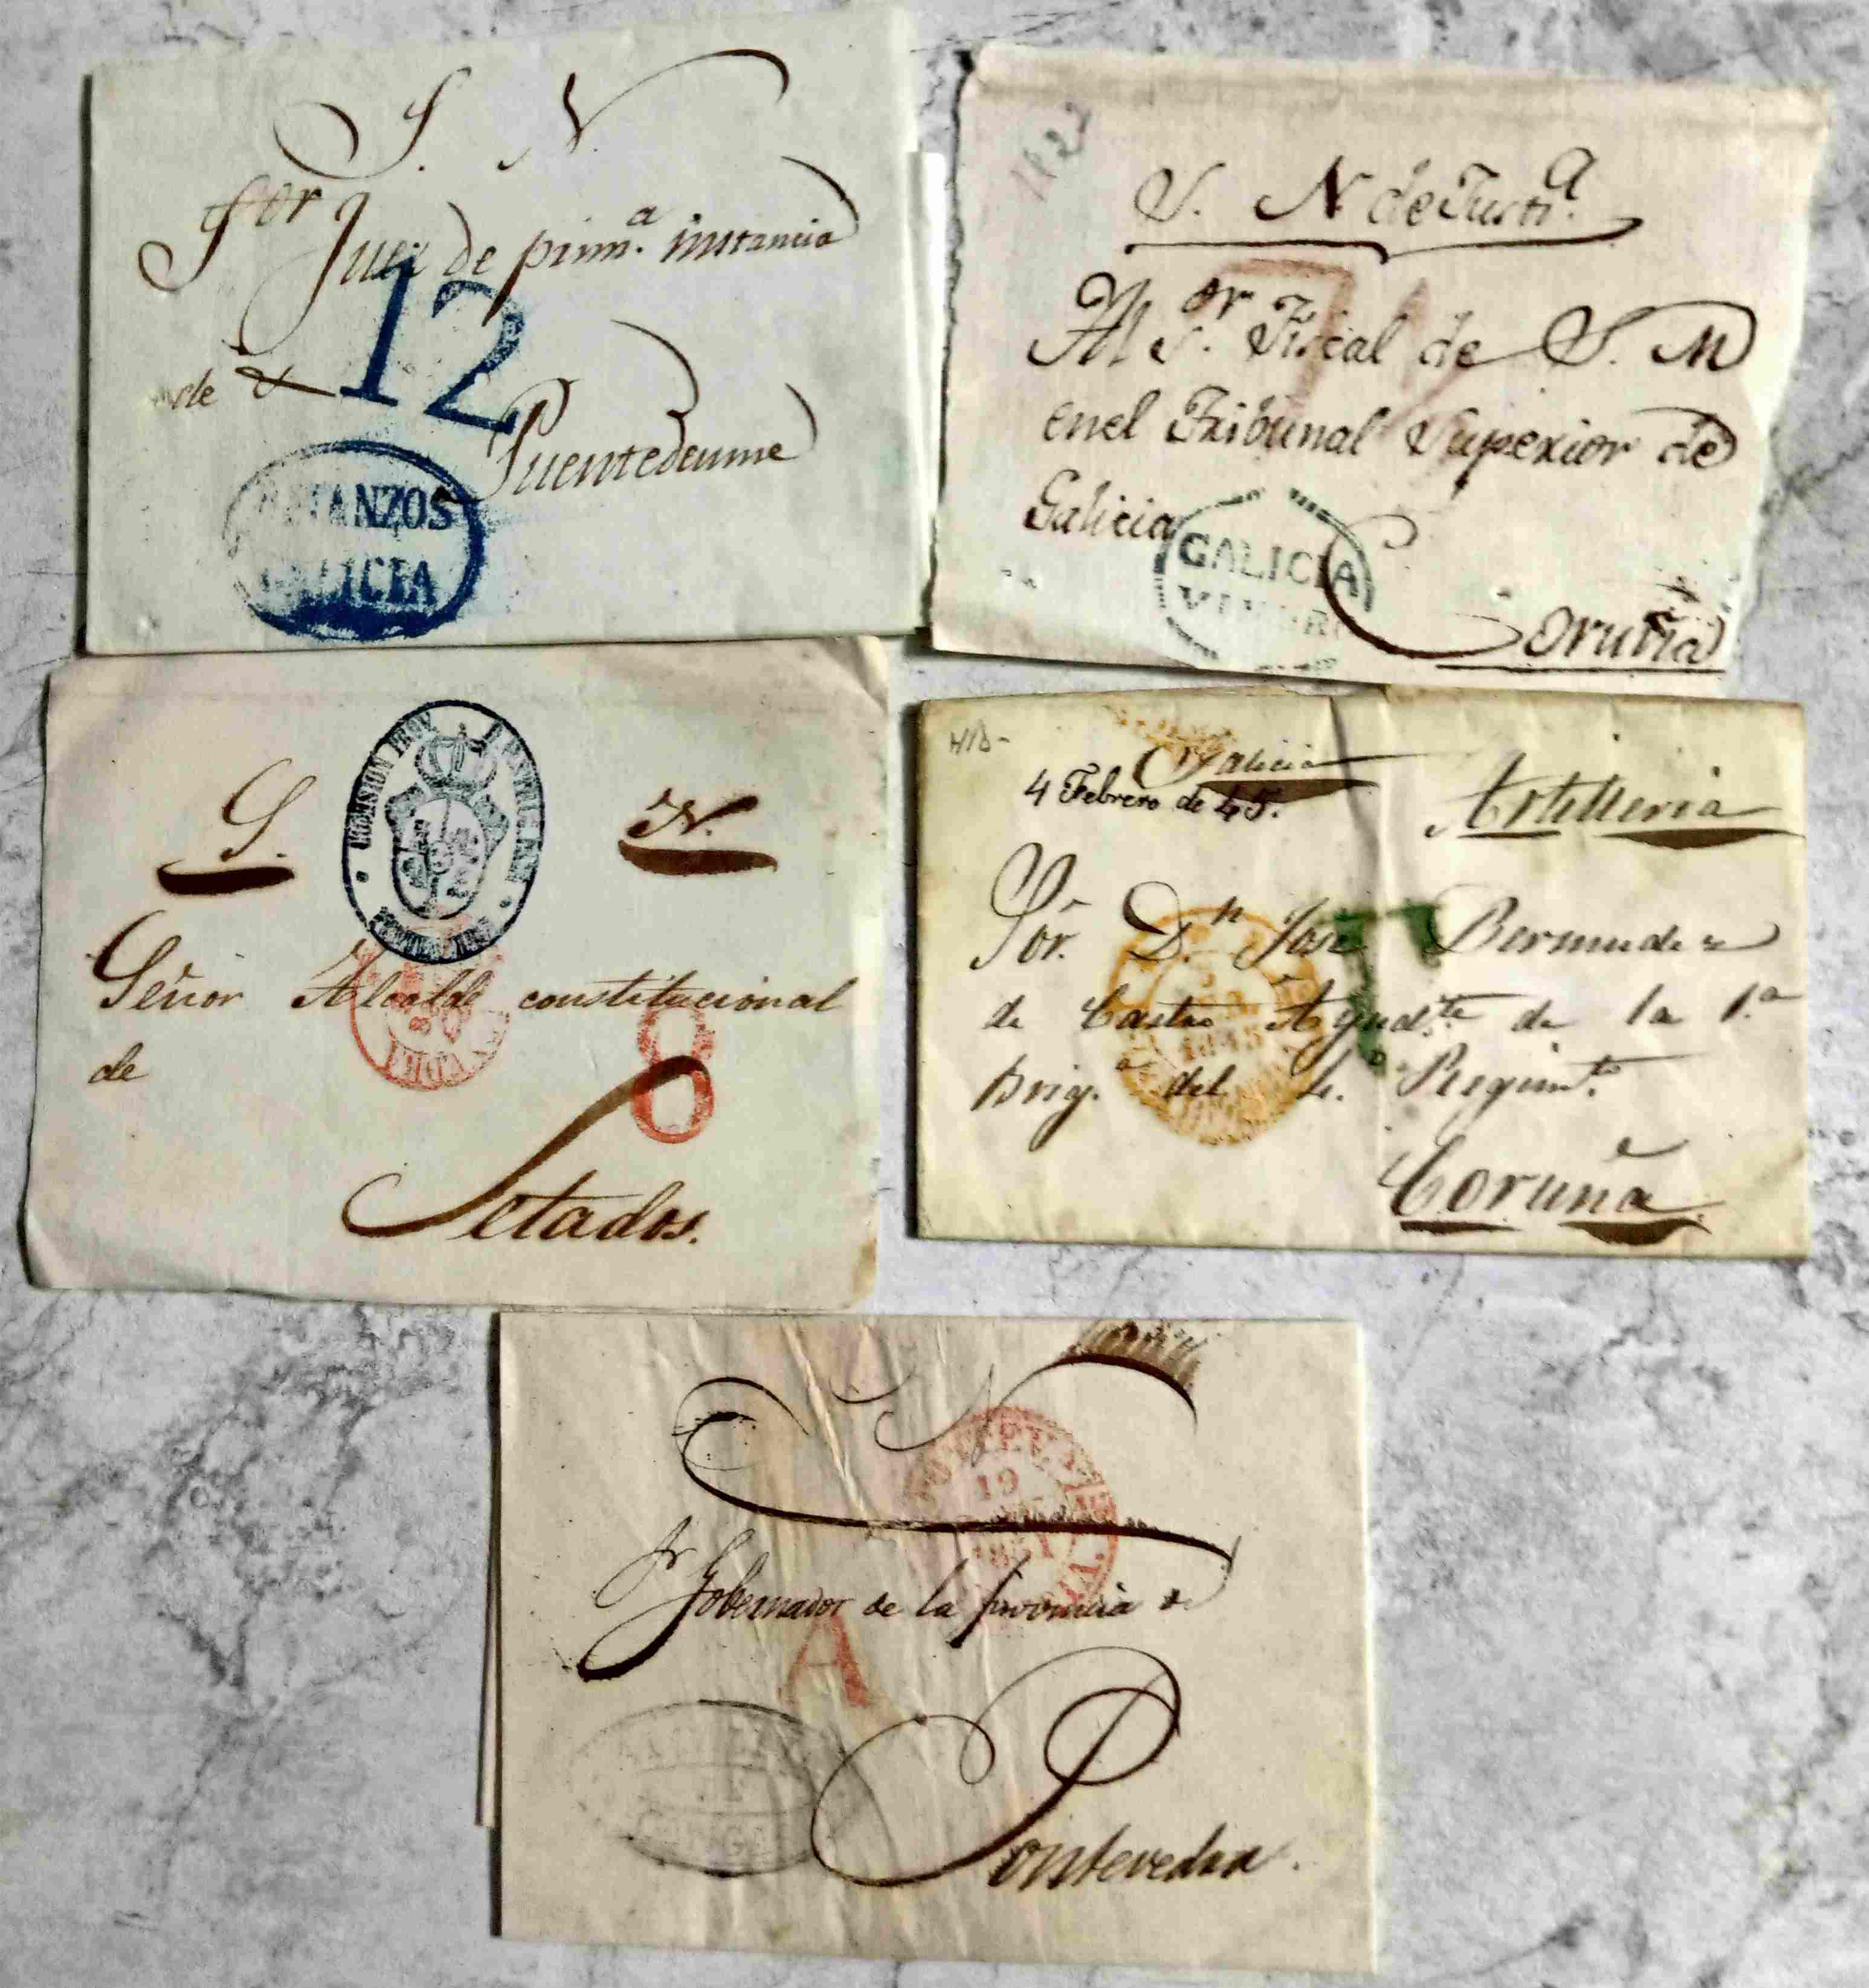 S. N.
Sor Juez de prim.a instancia
de
12
Puentedeume
BETANZOS
GALICIA
S. N. de Justi.a
Al S.or Fiscal de S. M
en el Tribunal Superior de
Galicia
GALICIA
Coruña
S. N.
Señor Alcalde constitucional
de
8
Setados.
Galicia
4 Febrero de 45.
Artilleria
Sor. D.n José Bermudez
de Castro Ayud.te de la 1.a
Brig.a del 4.o Regim.to
1845
Coruña
N
PONTEVEDRA
19
1851
Sr Gobernador de la provincia de
A
Pontevedra.